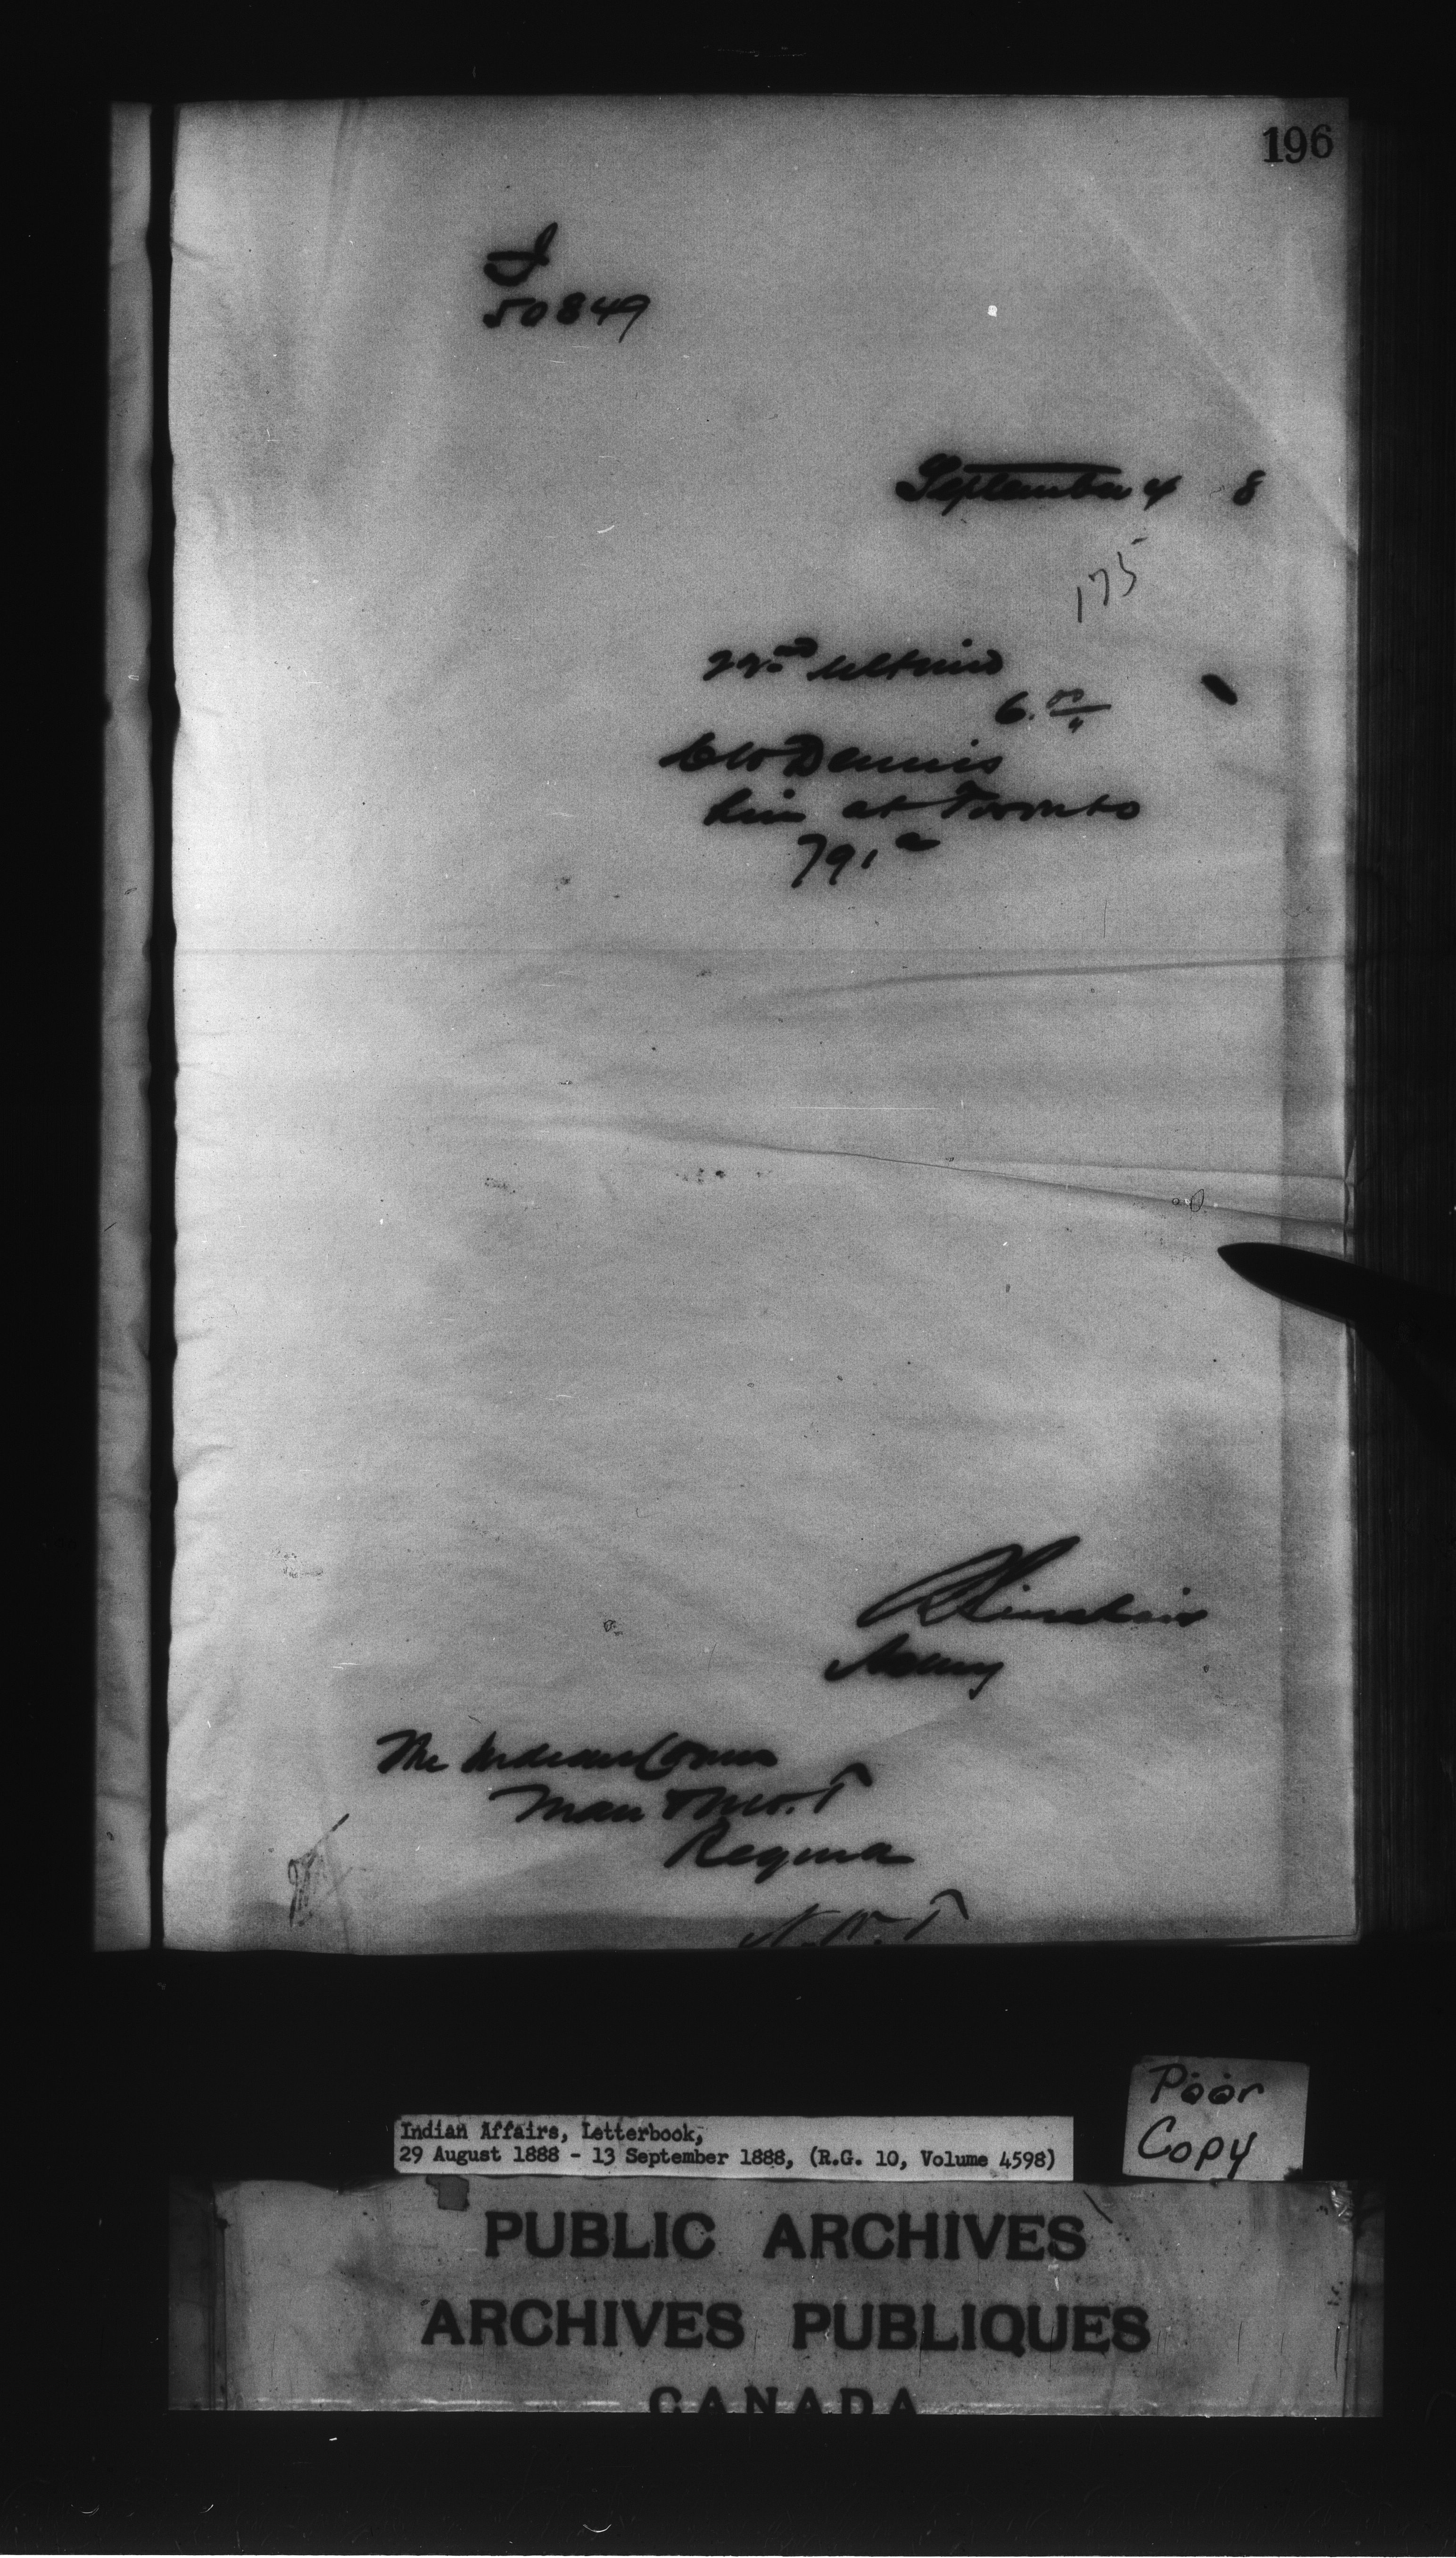 196
I
50849
September 4 8
175
22nd ultimo
6.00
C W Dennis
him at Toronto
791a
R Sinclair
The Indian Comr
Man & N.W.T
Regina
N.W.T
Poor
Copy
Indian Affairs, Letterbook,
29 August 1888 - 13 September 1888, (R.G. 10, Volume 4598)
PUBLIC ARCHIVES
ARCHIVES PUBLIQUES
CANADA